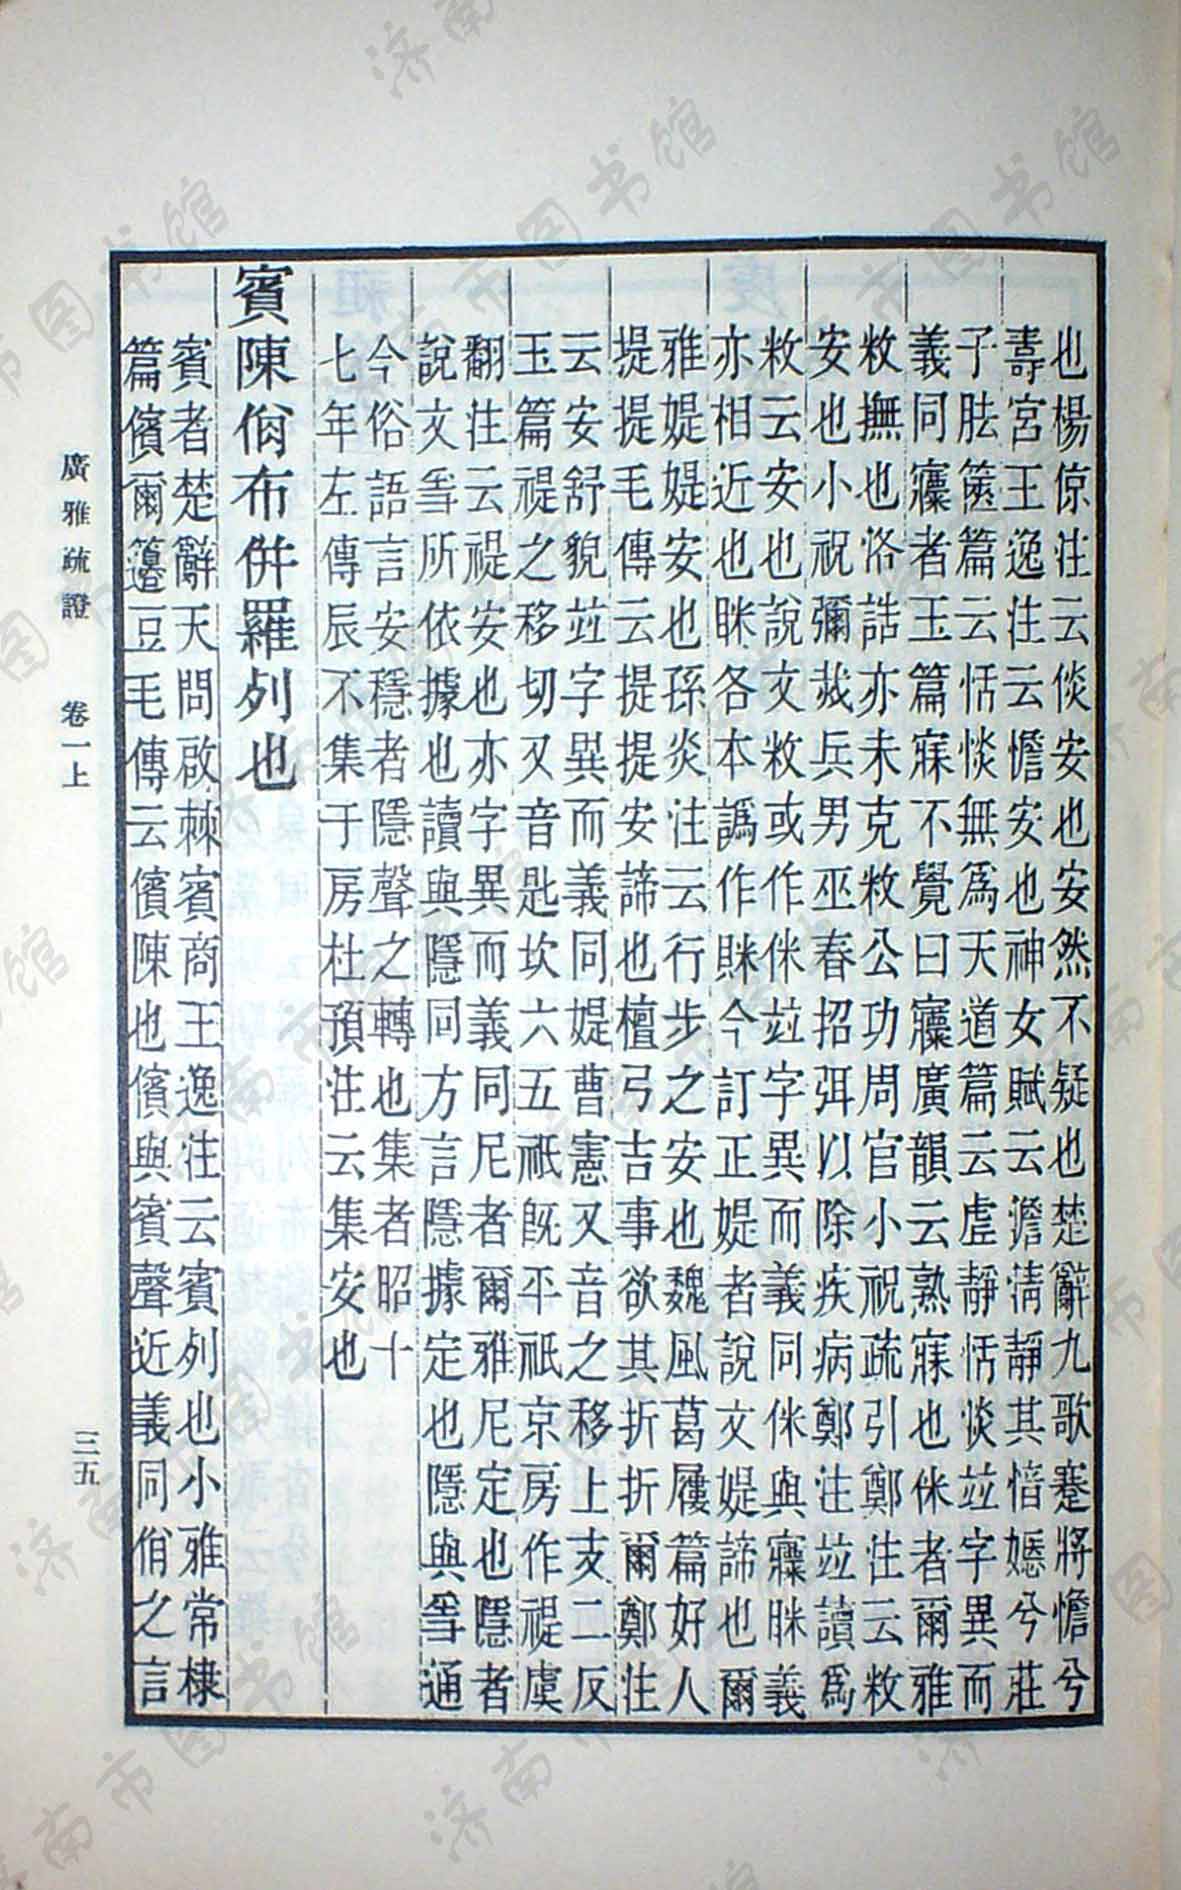 也楊倞注云倓安也安然不疑也楚辭九歌蹇將憺兮
壽宮王逸注云憺安也神女賦云澹淸靜其愔嫕兮莊
子胠篋篇云恬惔無爲天道篇云虛靜恬淡竝字異而
義同㝥者玉篇寐不覺曰㝥廣韻云熟寐也侎者爾雅
敉撫也洛誥亦未克敉公功周官小祝疏引鄭注云敉
安也小祝彌烖兵男巫春招弭以除疾病鄭注竝讀爲
敉云安也說文敉或作侎竝字異而義同侎與㝥眯義
亦相近也眯各本譌作眿今訂正媞者說文媞諦也爾
雅媞媞安也孫炎注云行步之安也魏風葛屨篇好人
提提毛傳云提提安諦也檀弓吉事欲其折折爾鄭注
云安舒貌竝字異而義同媞曹憲又音之移上支二反
玉篇禔之移切又音匙坎六五祇旣平祇京房作禔虞
翻注云禔安也亦字異而義同尼者爾雅尼定也隱者
說文㥯所依據也讀與隱同方言隱據定也隱與㥯通
今俗語言安穩者隱聲之轉也集者昭十
七年左傳辰不集于房杜預注云集安也
賓陳㑿布倂羅列也
賓者楚辭天問啟棘賓商王逸注云賓列也小雅常棣
篇儐爾籩豆毛傳云儐陳也儐與賓聲近義同㑿之言
廣雅疏證　卷一上
三五
济南市图书馆